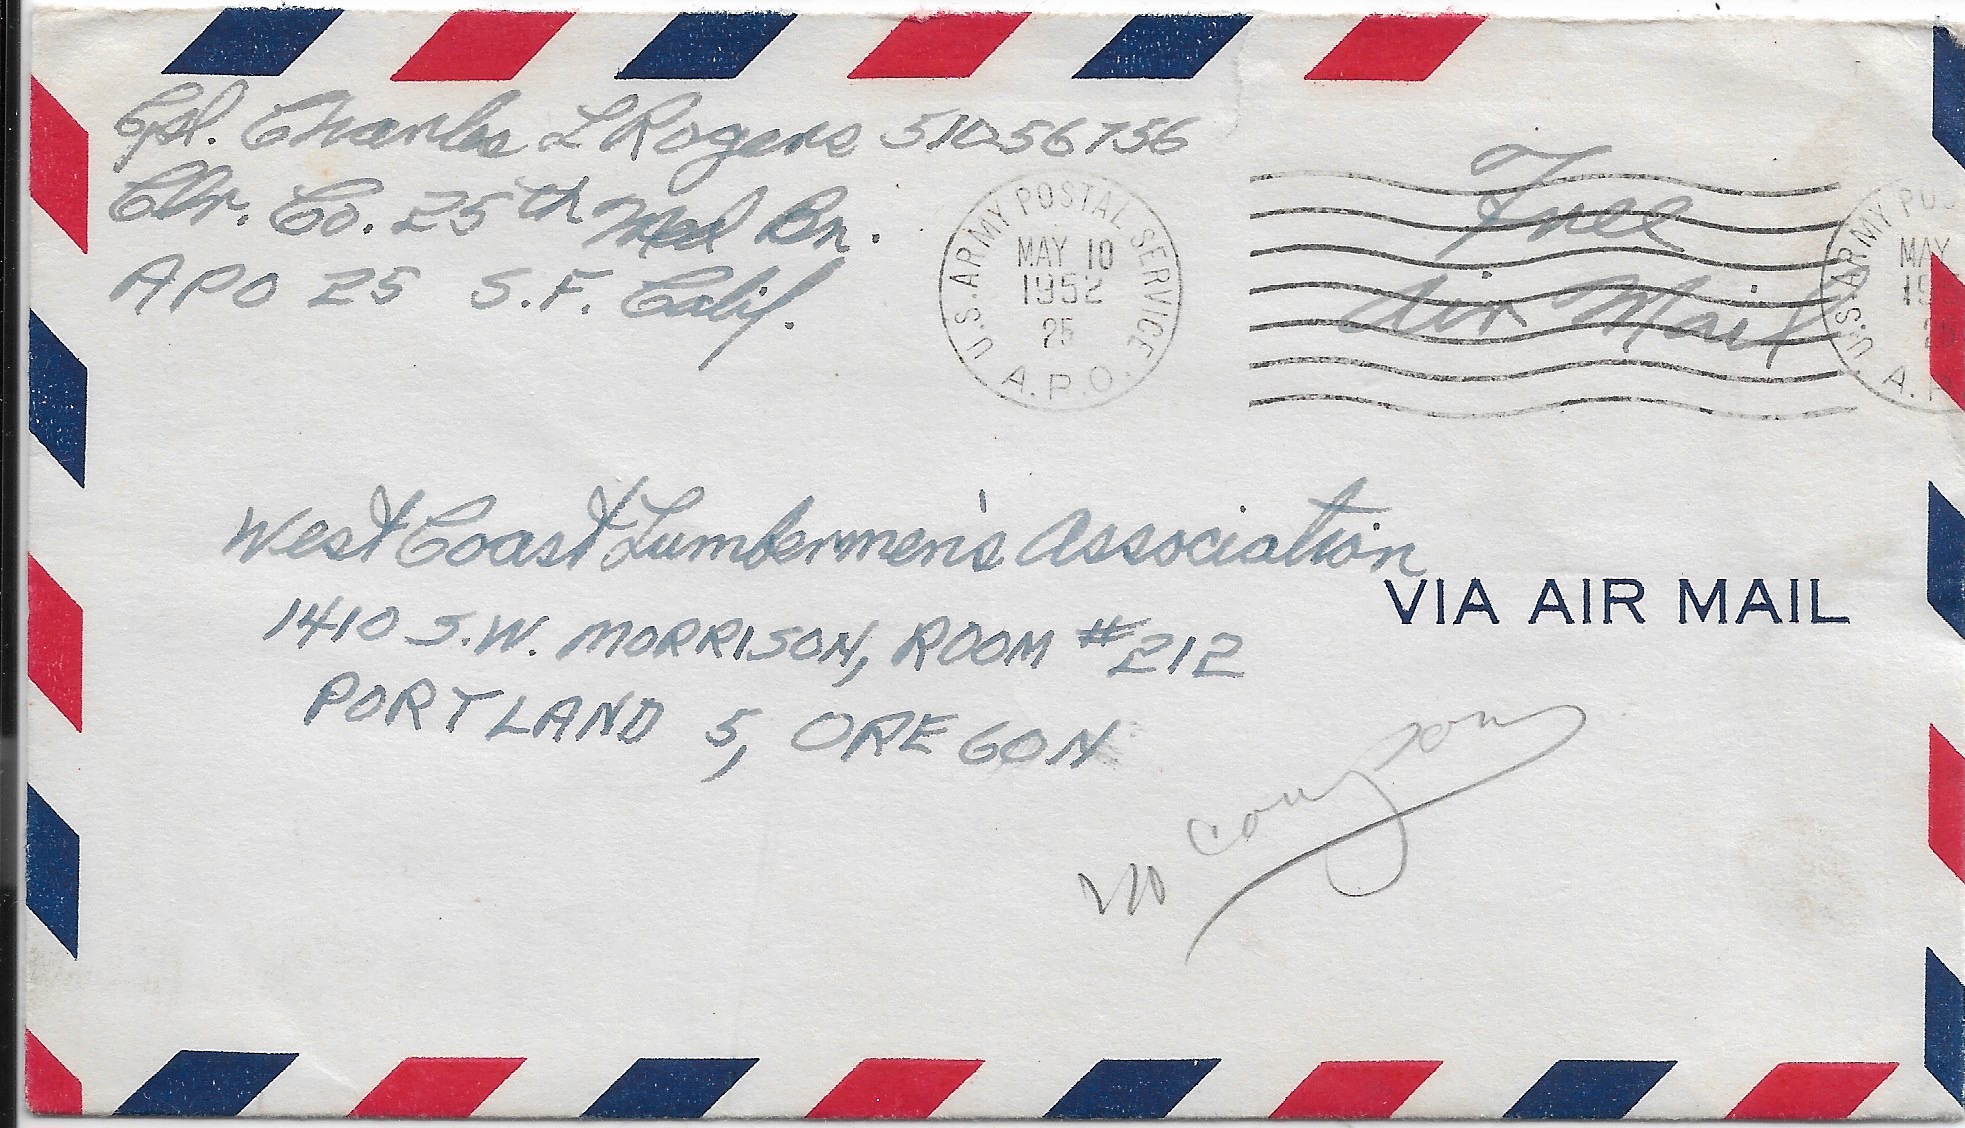 Cpl. Charles L Rogers 51056756
Clr. Co. 25th Med Bn.
APO 25 S.F. Calif.
U.S. ARMY POSTAL SERVICE
MAY 10
1952
25
A.P.O.
Free
Air Mail
U.S. ARMY POS
MAY
19
25
A.P
West Coast Lumbermen's Association
1410 S.W. MORRISON, ROOM #212
PORTLAND 5, OREGON
VIA AIR MAIL
no company